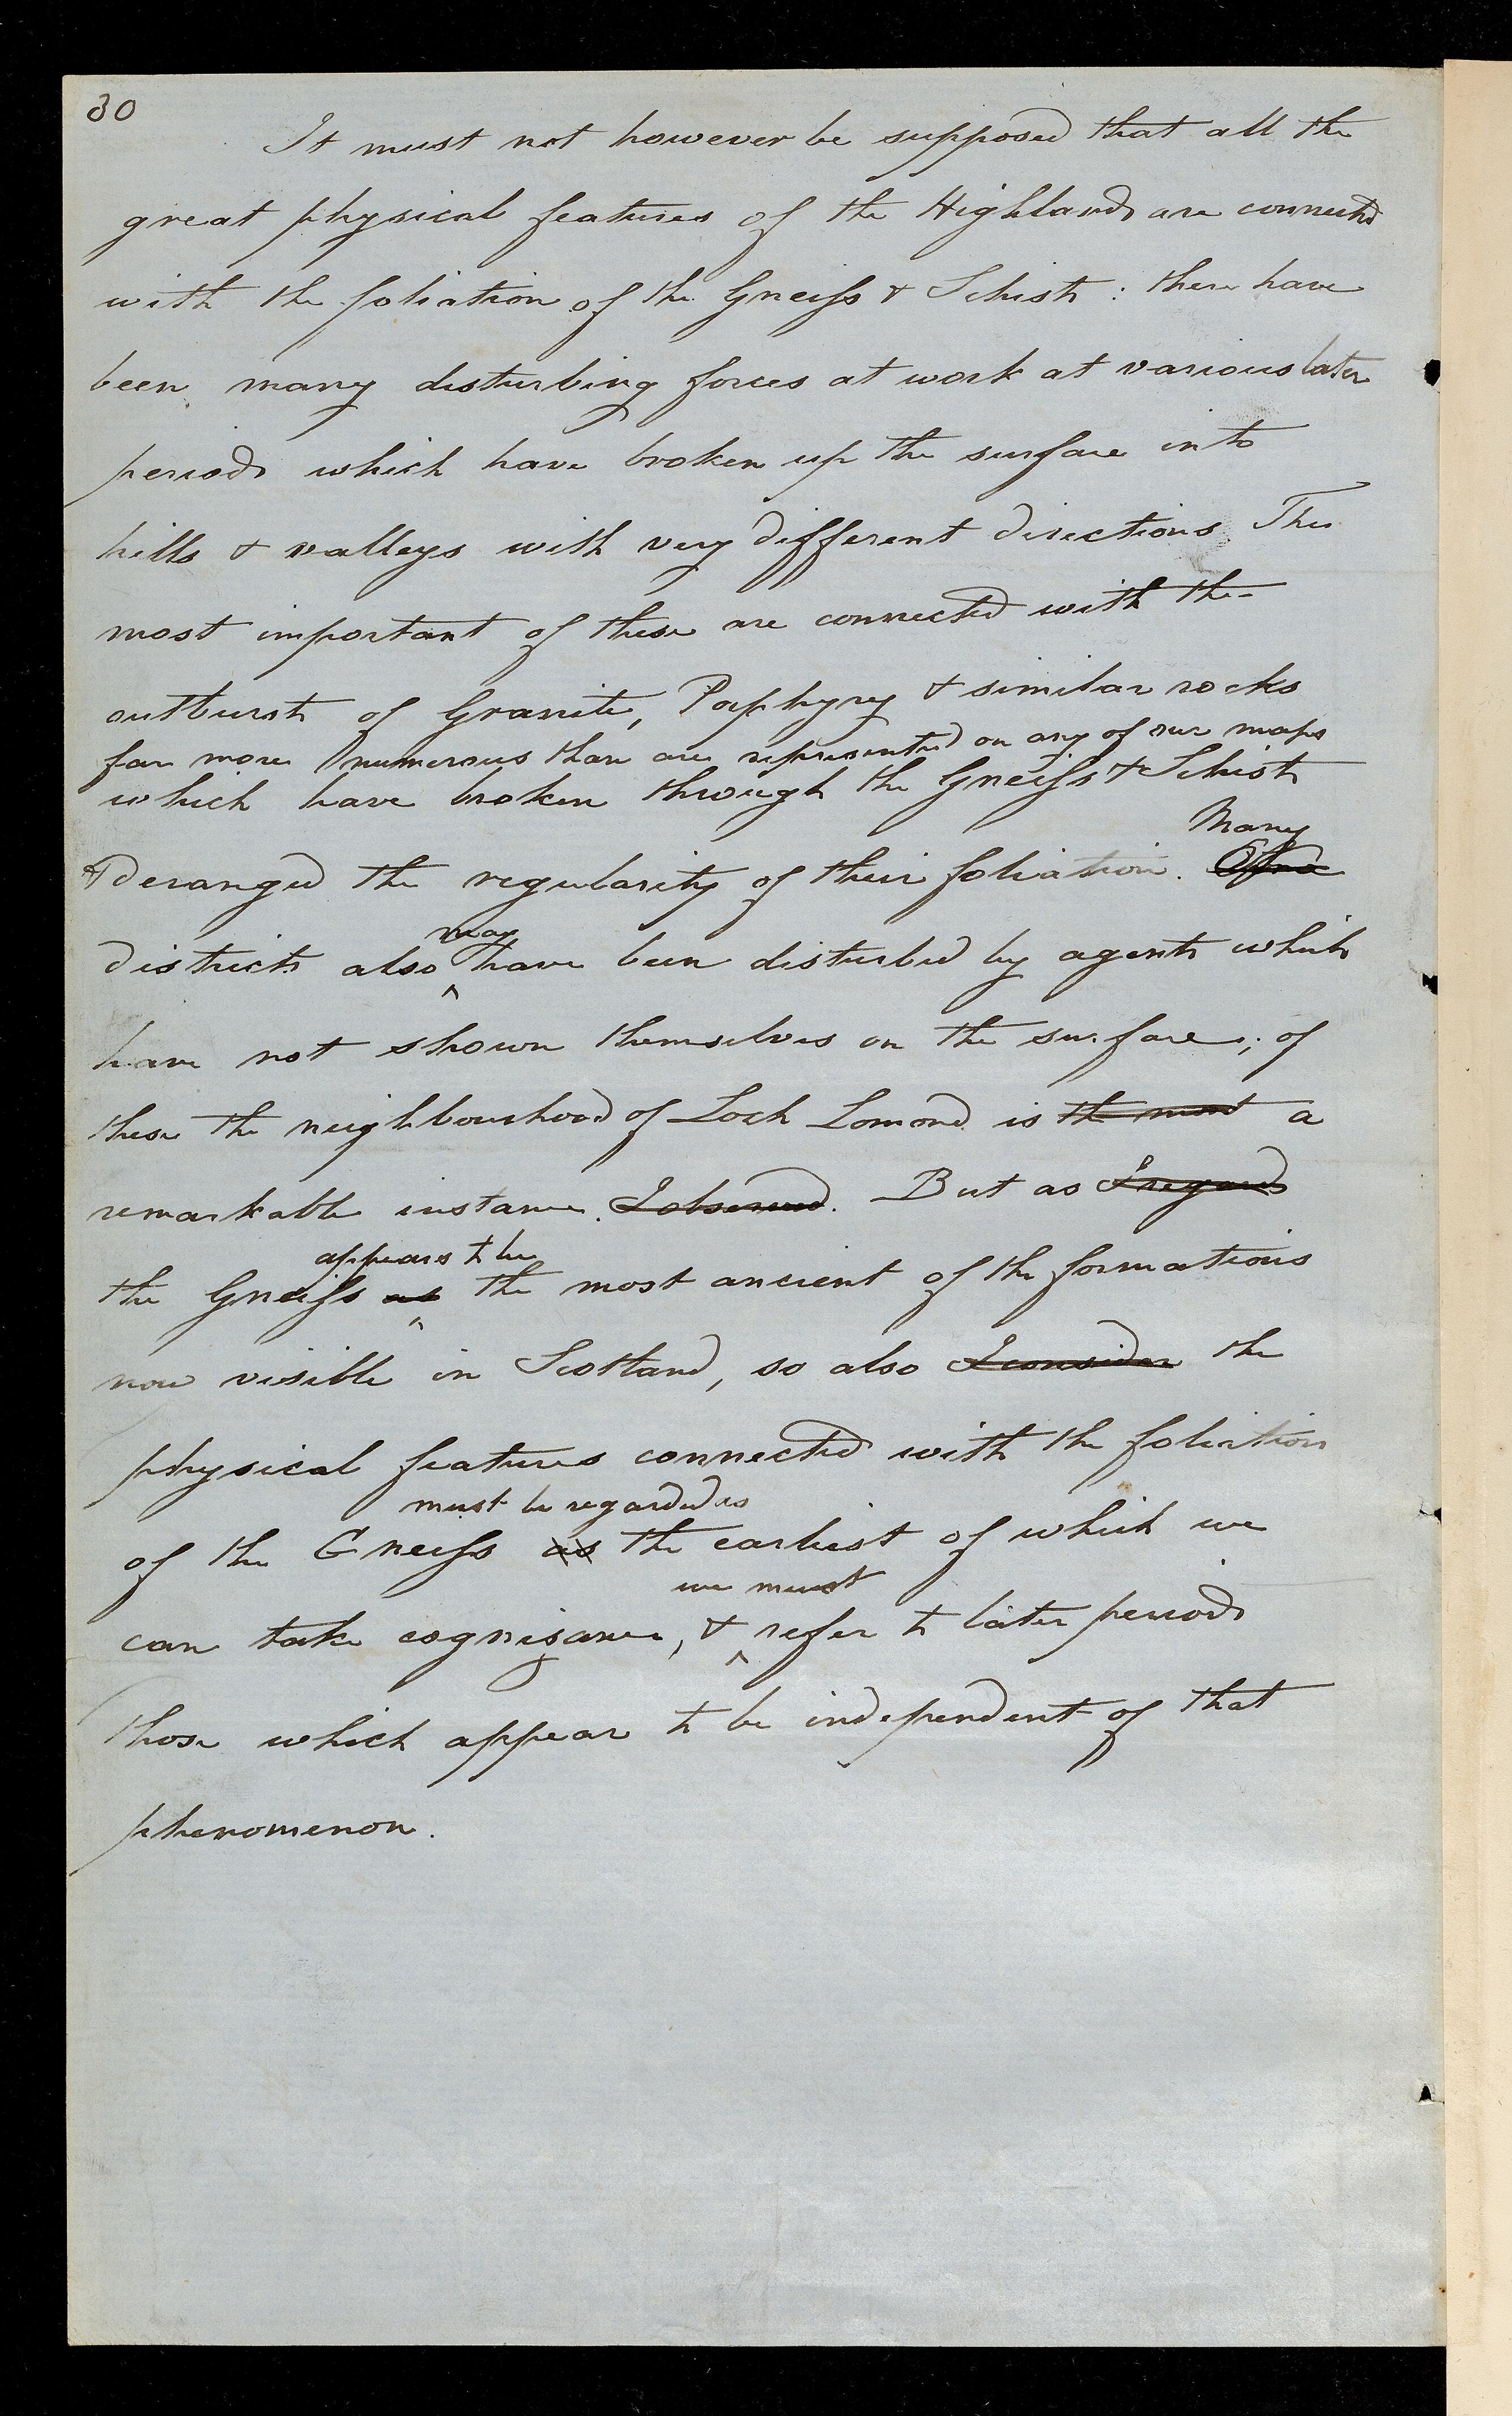 30
It must not however be supposed that all the
great physical features of the Highlands are connected
with the foliation of the Gneiss & Schist : there have
been many disturbing forces at work at various later
periods which have broken up the surface into
hills & valleys with very different directions. The
most important of these are connected with the
outburst of Granite, Porphyry & similar rocks
far more numerous than are represented on any of our maps
which have broken through the Gneiss & Schist
Many
& deranged the regularity of their foliation.
may
districts also have been disturbed by agents which
have not shown themselves on the surface; of
these the neighbourhood of Loch Lomond is the most a
remarkable instance. I observed. But as I regard
appears to be
the Gneiss as the most ancient of the formations
now visible in Scotland, so also I consider the
physical features connected with the foliation
must be regarded as
of the Gneiss as the earliest of which we
we must
can take cognisance, & refer to later periods
those which appear to be independent of that
phenomenon.